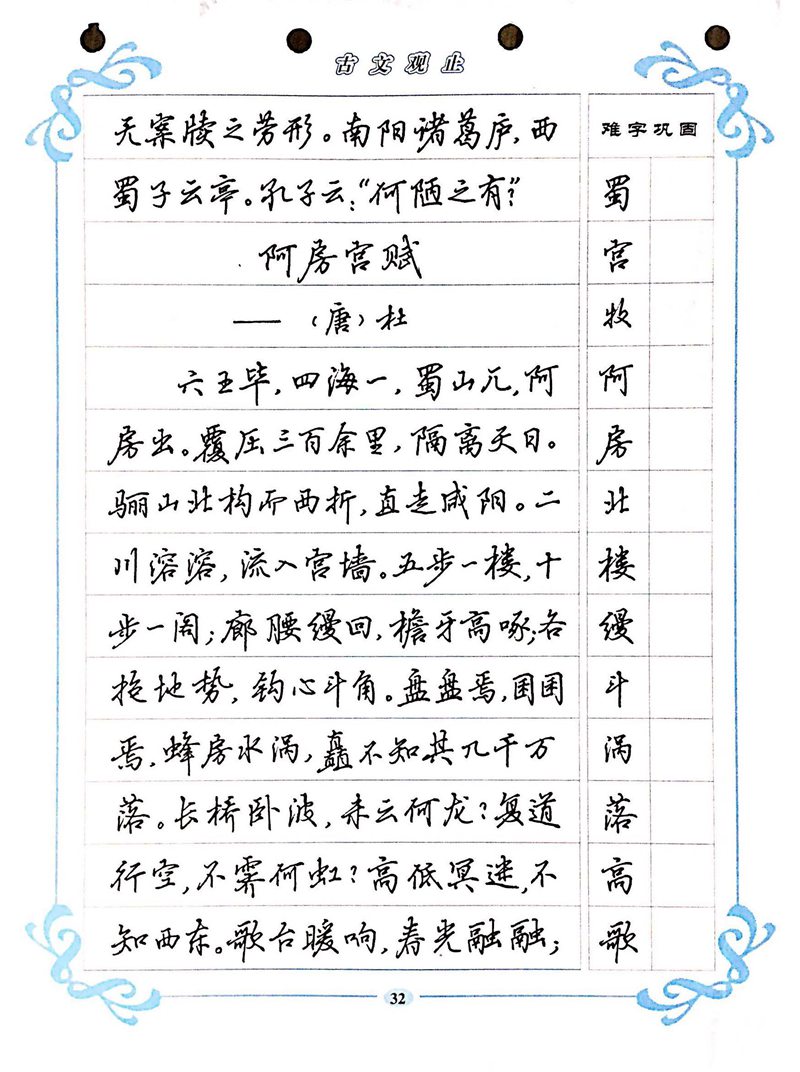 古文观止
无案牍之劳形。南阳诸葛庐，西
蜀子云亭。孔子云：“何陋之有？”
阿房宫赋
——（唐）杜
六王毕，四海一，蜀山兀，阿
房出。覆压三百余里，隔离天日。
骊山北构而西折，直走咸阳。二
川溶溶，流入宫墙。五步一楼，十
步一阁；廊腰缦回，檐牙高啄；各
抱地势，钩心斗角。盘盘焉，囷囷
焉，蜂房水涡，矗不知其几千万
落。长桥卧波，未云何龙？复道
行空，不霁何虹？高低冥迷，不
知西东。歌台暖响，春光融融；
难字巩固
蜀
宫
牧
阿
房
北
楼
缦
斗
涡
落
高
歌
32